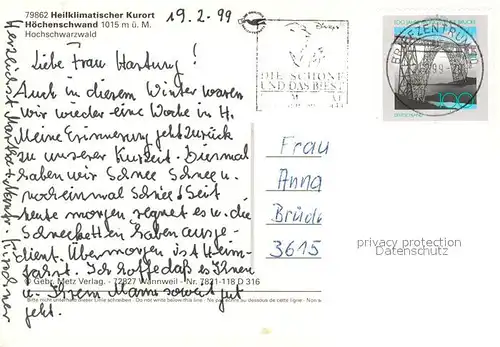 79862 Heilklimatischer Kurort
Höchenschwand 1015 m ü. M.
Hochschwarzwald
19.2.99
Liebe Frau Hartung!
Auch in diesem Winter waren
wir wieder eine Woche in H.
Meine Erinnerung geht zurück
zu unserer Kurzeit. Diesmal
haben wir Schnee Schnee u.
nocheinmal Schnee! Seit
heute morgen regnet es u. die
Schneeketten haben ausge-
dient. Übermorgen ist Heim-
fahrt. Ich hoffe daß es Ihnen
u. Ihrem Mann soweit gut
geht.
Herzlichst Martha
Kirchner
© Gebr. Metz Verlag. - 72827 Wannweil - Nr. 7821-118 D 316
Bitte nicht unterhalb dieser Linie schreiben - Do not write below this line - Ne pas écrire au dessous de cette ligne - Non
Disneys
DIE SCHÖNE
UND DAS BIEST
BRIEFZENTRUM
100
Frau
Anna
Brück
3615
privacy protection
Datenschutz